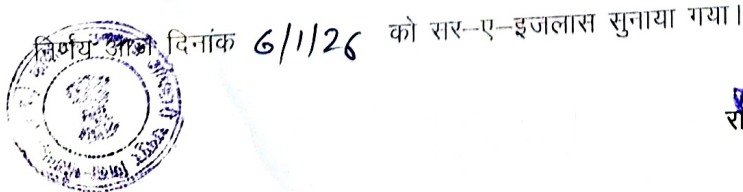 निर्णय आज दिनांक 6/1/26 को सर-ए-इजलास सुनाया गया।